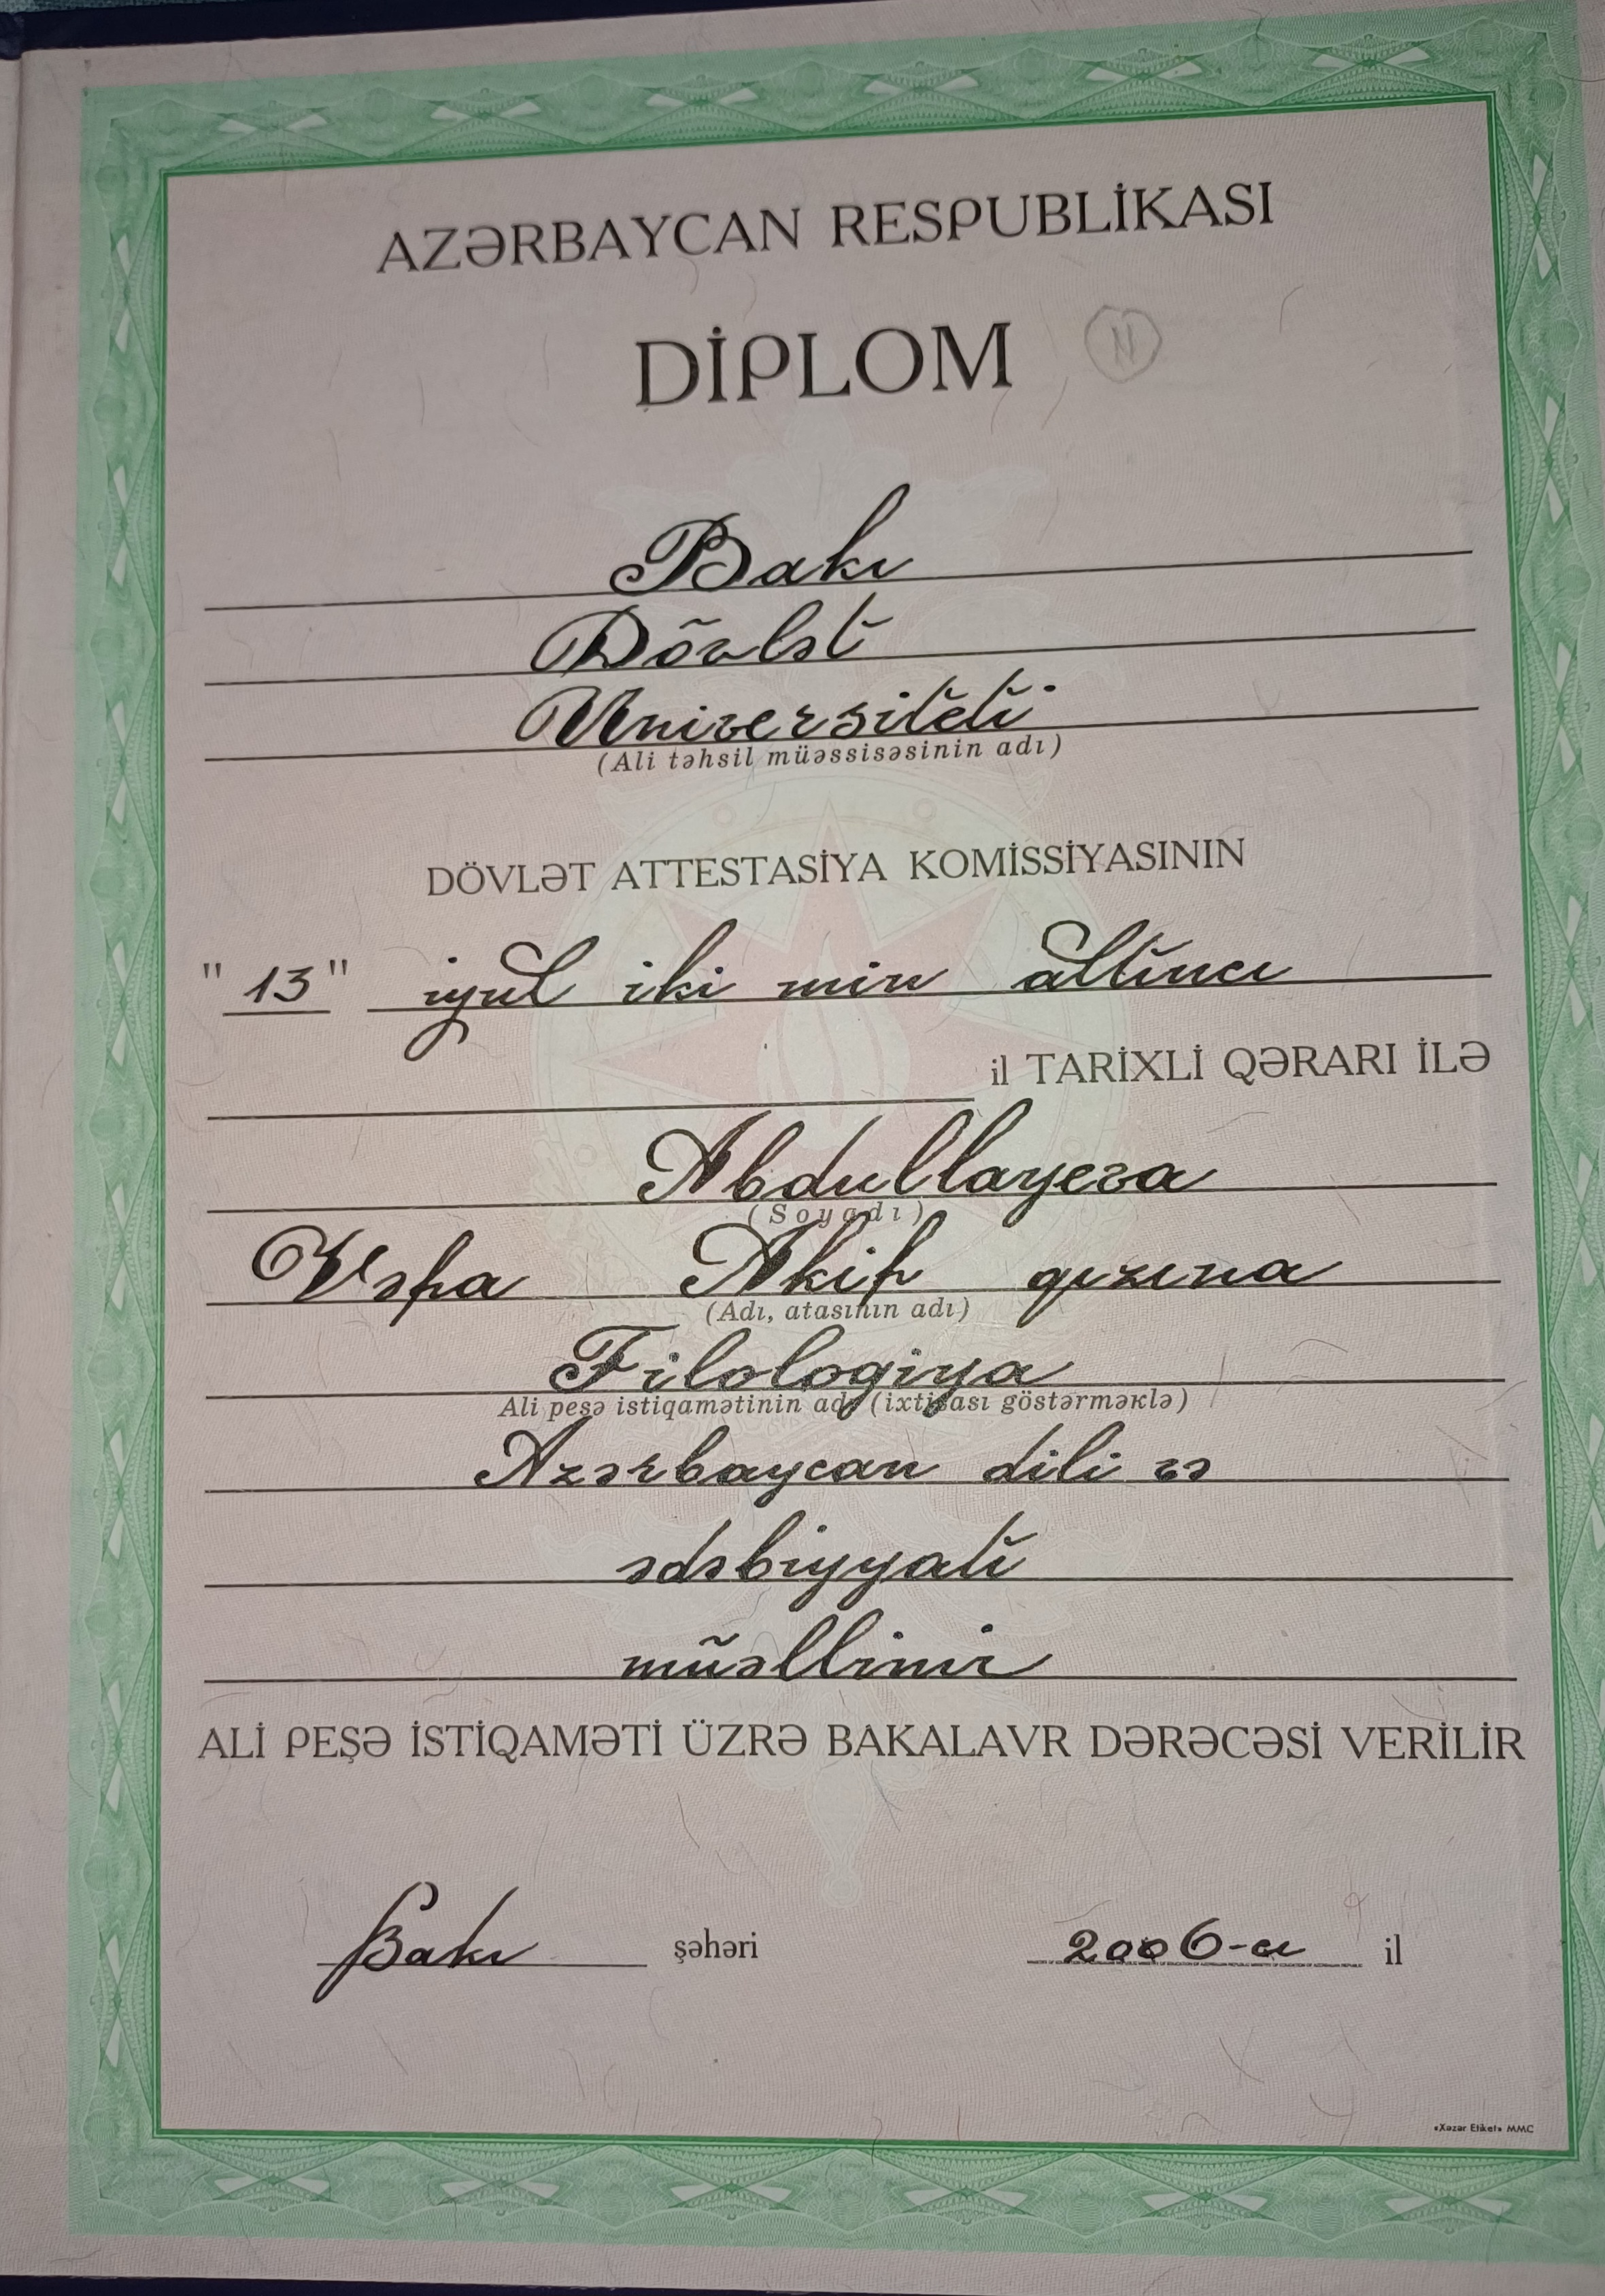 AZƏRBAYCAN RESPUBLİKASI
DİPLOM N
Bakı
Dövlət
Universiteti
(Ali təhsil müəssisəsinin adı)
DÖVLƏT ATTESTASİYA KOMİSSİYASININ
"13" iyul iki min altıncı
il TARİXLİ QƏRARI İLƏ
Abdullayeva
(Soyadı)
Vəfa Akif qızına
(Adı, atasının adı)
Filologiya
Ali peşə istiqamətinin adı (ixtisası göstərməklə)
Azərbaycan dili və
ədəbiyyatı
müəllimi
ALİ PEŞƏ İSTİQAMƏTİ ÜZRƏ BAKALAVR DƏRƏCƏSİ VERİLİR
Bakı şəhəri 2006-cı il
«Xəzər Etiket» MMC